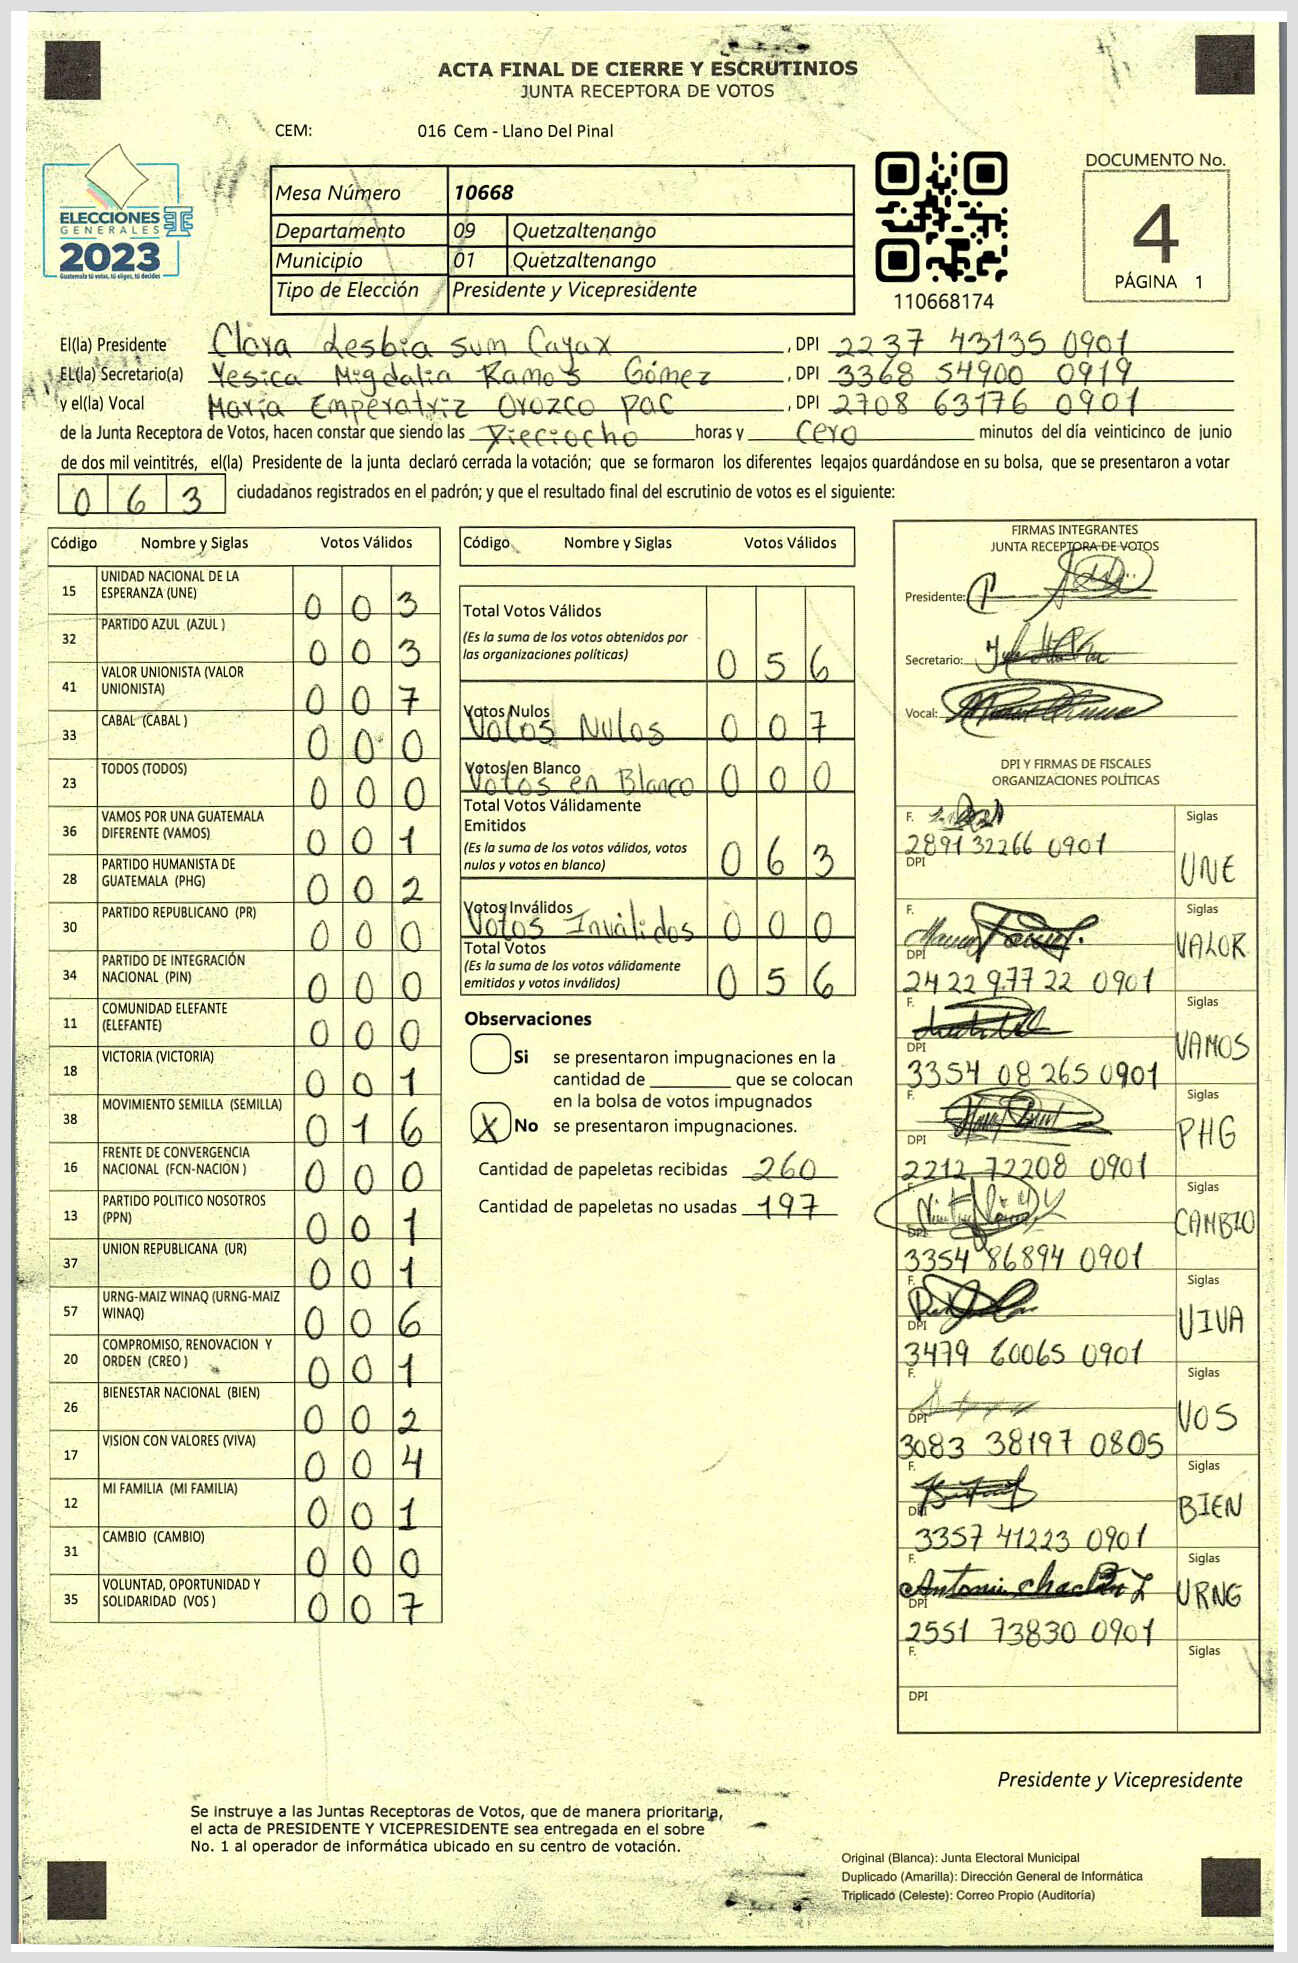 ACTA FINAL DE CIERRE Y ESCRUTINIOS
JUNTA RECEPTORA DE VOTOS
CEM: 016 Cem - Llano Del Pinal
ELECCIONES
GENERALES
2023
Guatemala tú votas, tú eliges, tú decides
Mesa Número 10668
Departamento 09 Quetzaltenango
Municipio 01 Quetzaltenango
Tipo de Elección Presidente y Vicepresidente
110668174
DOCUMENTO No.
4
PÁGINA 1
El(la) Presidente Clara Lesbia Sum Cayax, DPI 2237 43135 0901
EL(la) Secretario(a) Yesica Migdalia Ramos Gómez, DPI 3368 54900 0919
y el(la) Vocal María Emperatriz Orozco Pac, DPI 2708 63176 0901
de la Junta Receptora de Votos, hacen constar que siendo las Dieciocho horas y cero minutos del día veinticinco de junio
de dos mil veintitrés, el(la) Presidente de la junta declaró cerrada la votación; que se formaron los diferentes legajos guardándose en su bolsa, que se presentaron a votar
063 ciudadanos registrados en el padrón; y que el resultado final del escrutinio de votos es el siguiente:
Código Nombre y Siglas Votos Válidos
15 UNIDAD NACIONAL DE LA ESPERANZA (UNE) 003
32 PARTIDO AZUL (AZUL ) 003
41 VALOR UNIONISTA (VALOR UNIONISTA) 007
33 CABAL (CABAL ) 000
23 TODOS (TODOS) 000
36 VAMOS POR UNA GUATEMALA DIFERENTE (VAMOS) 001
28 PARTIDO HUMANISTA DE GUATEMALA (PHG) 002
30 PARTIDO REPUBLICANO (PR) 000
34 PARTIDO DE INTEGRACIÓN NACIONAL (PIN) 000
11 COMUNIDAD ELEFANTE (ELEFANTE) 000
18 VICTORIA (VICTORIA) 001
38 MOVIMIENTO SEMILLA (SEMILLA) 016
16 FRENTE DE CONVERGENCIA NACIONAL (FCN-NACION ) 000
13 PARTIDO POLITICO NOSOTROS (PPN) 001
37 UNION REPUBLICANA (UR) 001
57 URNG-MAIZ WINAQ (URNG-MAIZ WINAQ) 006
20 COMPROMISO, RENOVACION Y ORDEN (CREO ) 001
26 BIENESTAR NACIONAL (BIEN) 002
17 VISION CON VALORES (VIVA) 004
12 MI FAMILIA (MI FAMILIA) 001
31 CAMBIO (CAMBIO) 000
35 VOLUNTAD, OPORTUNIDAD Y SOLIDARIDAD (VOS ) 007
Código Nombre y Siglas Votos Válidos
Total Votos Válidos
(Es la suma de los votos obtenidos por
las organizaciones políticas) 056
Votos Nulos
Votos Nulos 007
Votos en Blanco
Votos en Blanco 000
Total Votos Válidamente
Emitidos
(Es la suma de los votos válidos, votos
nulos y votos en blanco) 063
Votos Inválidos
Votos Inválidos 000
Total Votos
(Es la suma de los votos válidamente
emitidos y votos inválidos) 056
Observaciones
Si se presentaron impugnaciones en la
cantidad de ________ que se colocan
en la bolsa de votos impugnados
X No se presentaron impugnaciones.
Cantidad de papeletas recibidas 260
Cantidad de papeletas no usadas 197
FIRMAS INTEGRANTES
JUNTA RECEPTORA DE VOTOS
Presidente:
Secretario:
Vocal:
DPI Y FIRMAS DE FISCALES
ORGANIZACIONES POLÍTICAS
F. Siglas
DPI 2891 32266 0901 UNE
F. Siglas
DPI 2422 97722 0901 VALOR
F. Siglas
DPI 3354 08265 0901 VAMOS
F. Siglas
DPI 2212 72208 0901 PHG
F. Siglas
DPI 3354 86894 0901 CAMBIO
F. Siglas
DPI 3479 60065 0901 VIVA
F. Siglas
DPI 3083 38197 0805 VOS
F. Siglas
DPI 3357 41223 0901 BIEN
F. Siglas
DPI 2551 73830 0901 URNG
F. Siglas
DPI
Presidente y Vicepresidente
Se instruye a las Juntas Receptoras de Votos, que de manera prioritaria,
el acta de PRESIDENTE Y VICEPRESIDENTE sea entregada en el sobre
No. 1 al operador de informática ubicado en su centro de votación.
Original (Blanca): Junta Electoral Municipal
Duplicado (Amarilla): Dirección General de Informática
Triplicado (Celeste): Correo Propio (Auditoría)